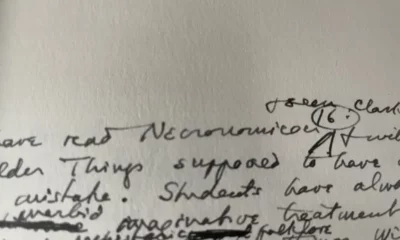 & seen Clark
16.
have read Necronomicon & will
lder Things supposed to have
mistake. Students have alwa
morbid imaginative treatment
folklore wi